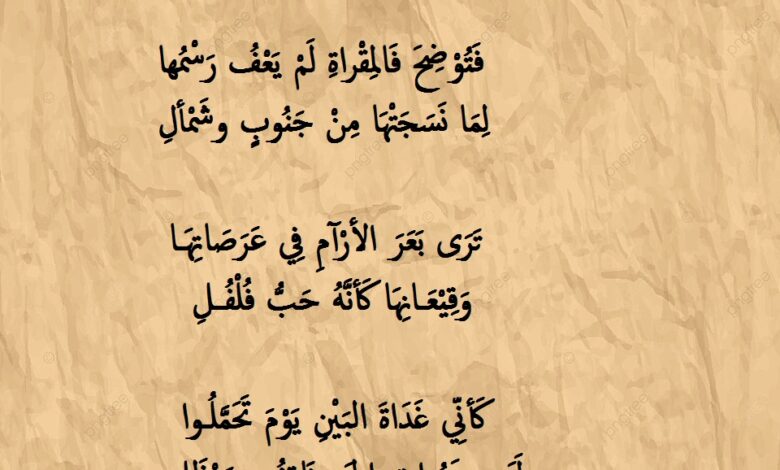 فَتُوْضِحَ فَالمِقْراةِ لَمْ يَعْفُ رَسْمُها
لِمَا نَسَجَتْهَا مِنْ جَنُوبٍ وشَمْألِ
تَرَى بَعَرَ الأرْآمِ فِي عَرَصَاتِهَا
وَقِيْعَانِهَا كَأنَّهُ حَبُّ فُلْفُلِ
كَأنِّي غَدَاةَ البَيْنِ يَوْمَ تَحَمَّلُوا